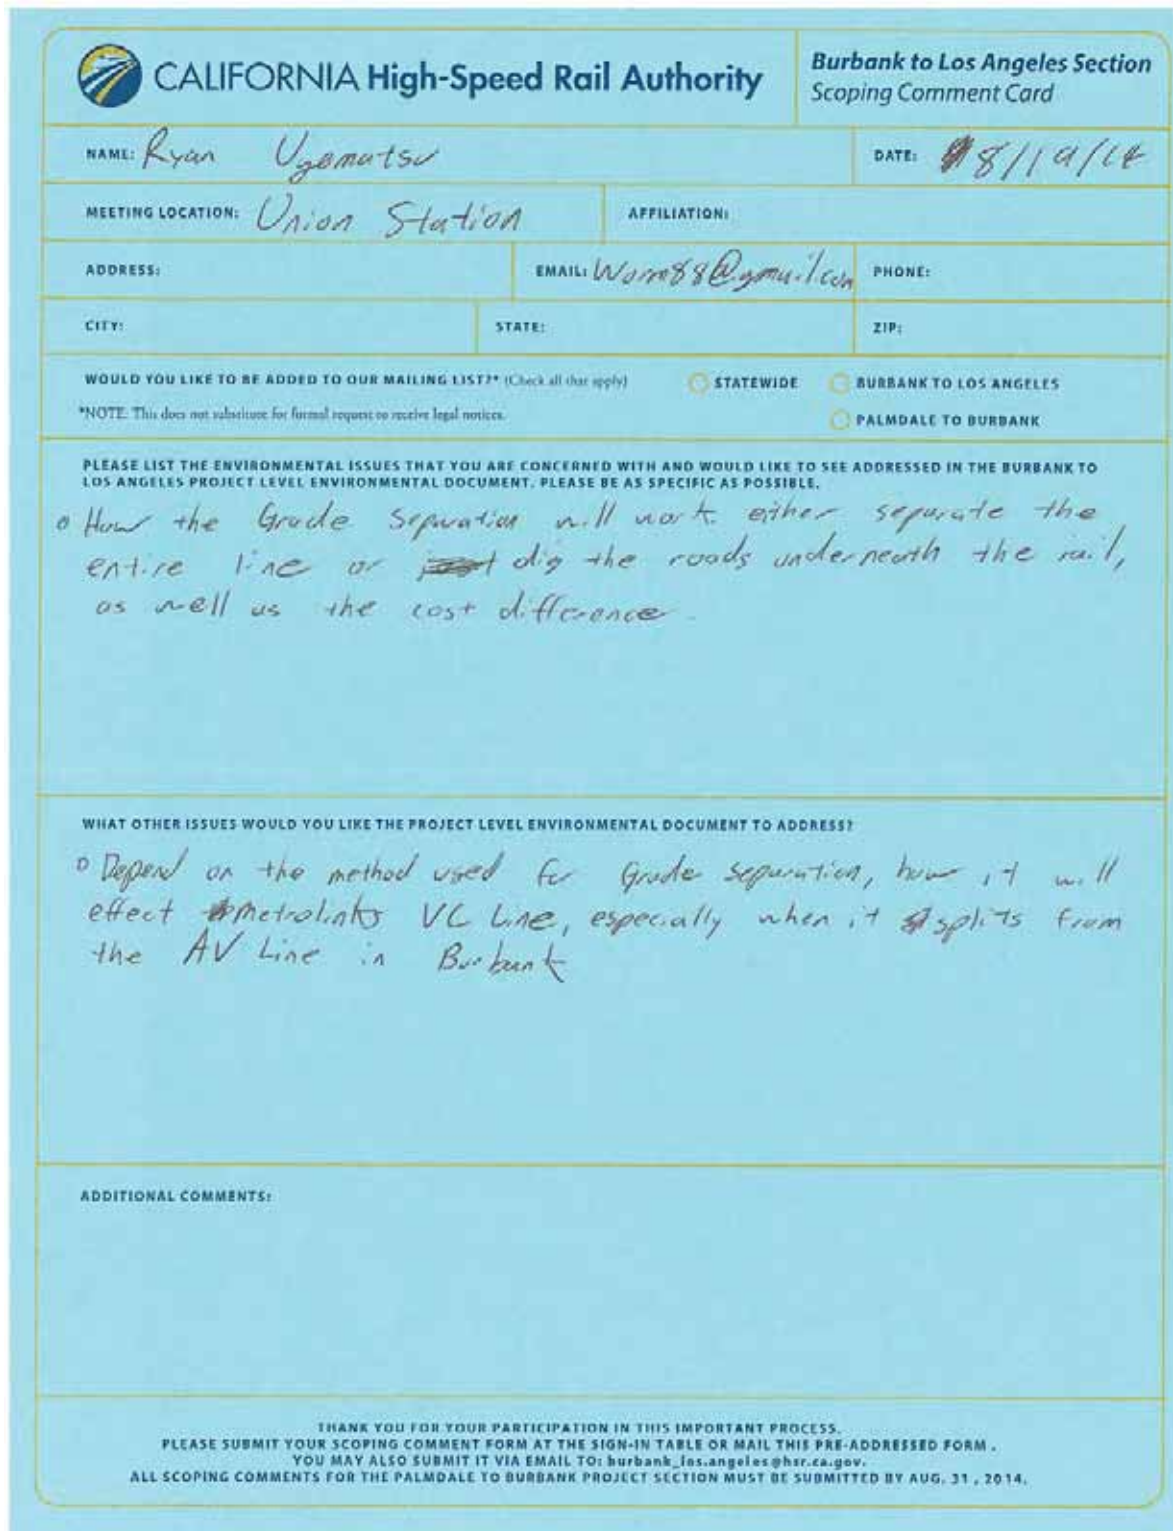 CALIFORNIA High-Speed Rail Authority
Burbank to Los Angeles Section
Scoping Comment Card
NAME: Ryan Uyematsu
DATE: 8/19/14
MEETING LOCATION: Union Station
AFFILIATION:
ADDRESS:
EMAIL: Worm88@gmail.com
PHONE:
CITY:
STATE:
ZIP:
WOULD YOU LIKE TO BE ADDED TO OUR MAILING LIST?* (Check all that apply)
STATEWIDE
BURBANK TO LOS ANGELES
*NOTE: This does not substitute for formal request to receive legal notices.
PALMDALE TO BURBANK
PLEASE LIST THE ENVIRONMENTAL ISSUES THAT YOU ARE CONCERNED WITH AND WOULD LIKE TO SEE ADDRESSED IN THE BURBANK TO
LOS ANGELES PROJECT LEVEL ENVIRONMENTAL DOCUMENT. PLEASE BE AS SPECIFIC AS POSSIBLE.
How the Grade Separation will work either separate the
entire line or dig the roads underneath the rail,
as well as the cost difference.
WHAT OTHER ISSUES WOULD YOU LIKE THE PROJECT LEVEL ENVIRONMENTAL DOCUMENT TO ADDRESS?
Depend on the method used for Grade separation, how it will
effect metrolinks VC Line, especially when it splits from
the AV Line in Burbank
ADDITIONAL COMMENTS:
THANK YOU FOR YOUR PARTICIPATION IN THIS IMPORTANT PROCESS.
PLEASE SUBMIT YOUR SCOPING COMMENT FORM AT THE SIGN-IN TABLE OR MAIL THIS PRE-ADDRESSED FORM .
YOU MAY ALSO SUBMIT IT VIA EMAIL TO: burbank_los.angeles@hsr.ca.gov.
ALL SCOPING COMMENTS FOR THE PALMDALE TO BURBANK PROJECT SECTION MUST BE SUBMITTED BY AUG. 31 , 2014.